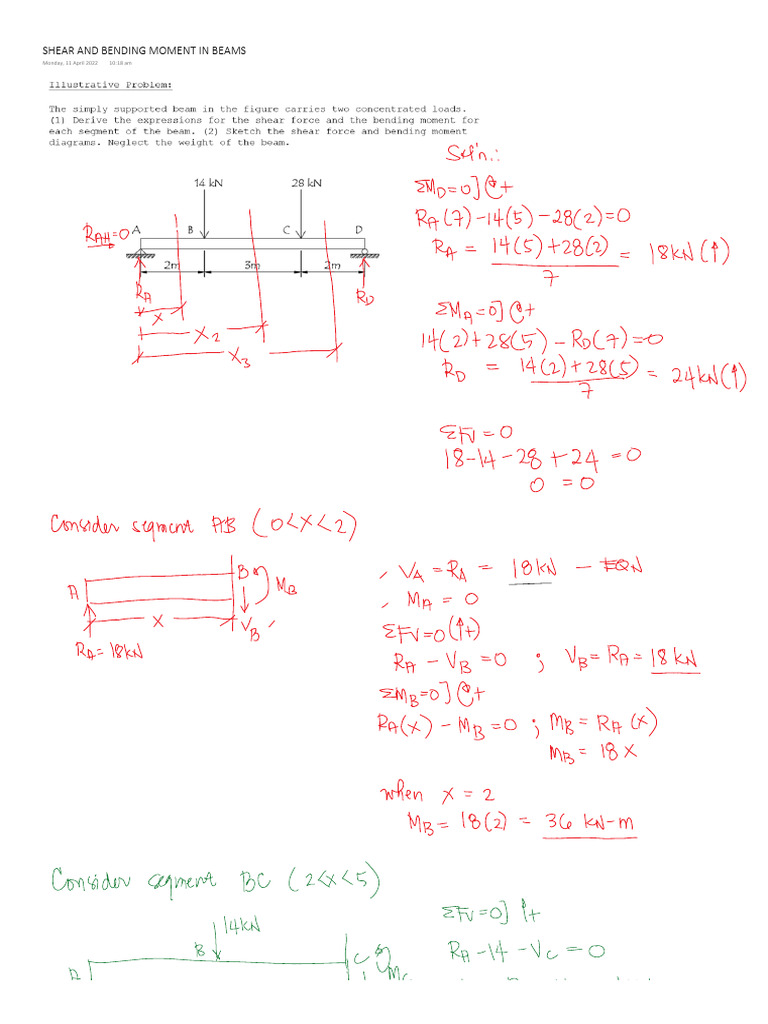 SHEAR AND BENDING MOMENT IN BEAMS
Monday, 11 April 2022 10:18 am
Illustrative Problem:
The simply supported beam in the figure carries two concentrated loads.
(1) Derive the expressions for the shear force and the bending moment for
each segment of the beam. (2) Sketch the shear force and bending moment
diagrams. Neglect the weight of the beam.
14 kN 28 kN
R_AH=0 A B C D
2m 3m 2m
R_A R_D
x
x_2
x_3
Sol'n.:
ΣM_D=0]↻+
R_A(7)-14(5)-28(2)=0
R_A = 14(5)+28(2) = 18kN(↑)
7
ΣM_A=0]↻+
14(2)+28(5)-R_D(7)=0
R_D = 14(2)+28(5) = 24kN(↑)
7
ΣFV=0
18-14-28+24=0
0=0
Consider segment AB (0<x<2)
A B M_B
x V_B
R_A=18kN
V_A=R_A= 18kN - EQN
M_A=0
ΣFV=0(↑+)
R_A-V_B=0 ; V_B=R_A=18kN
ΣM_B=0]↻+
R_A(x)-M_B=0 ; M_B=R_A(x)
M_B=18x
when x=2
M_B=18(2)= 36 kN-m
Consider segment BC (2<x<5)
14kN
B
A C M_C
ΣFV=0]↑+
R_A-14-V_C=0